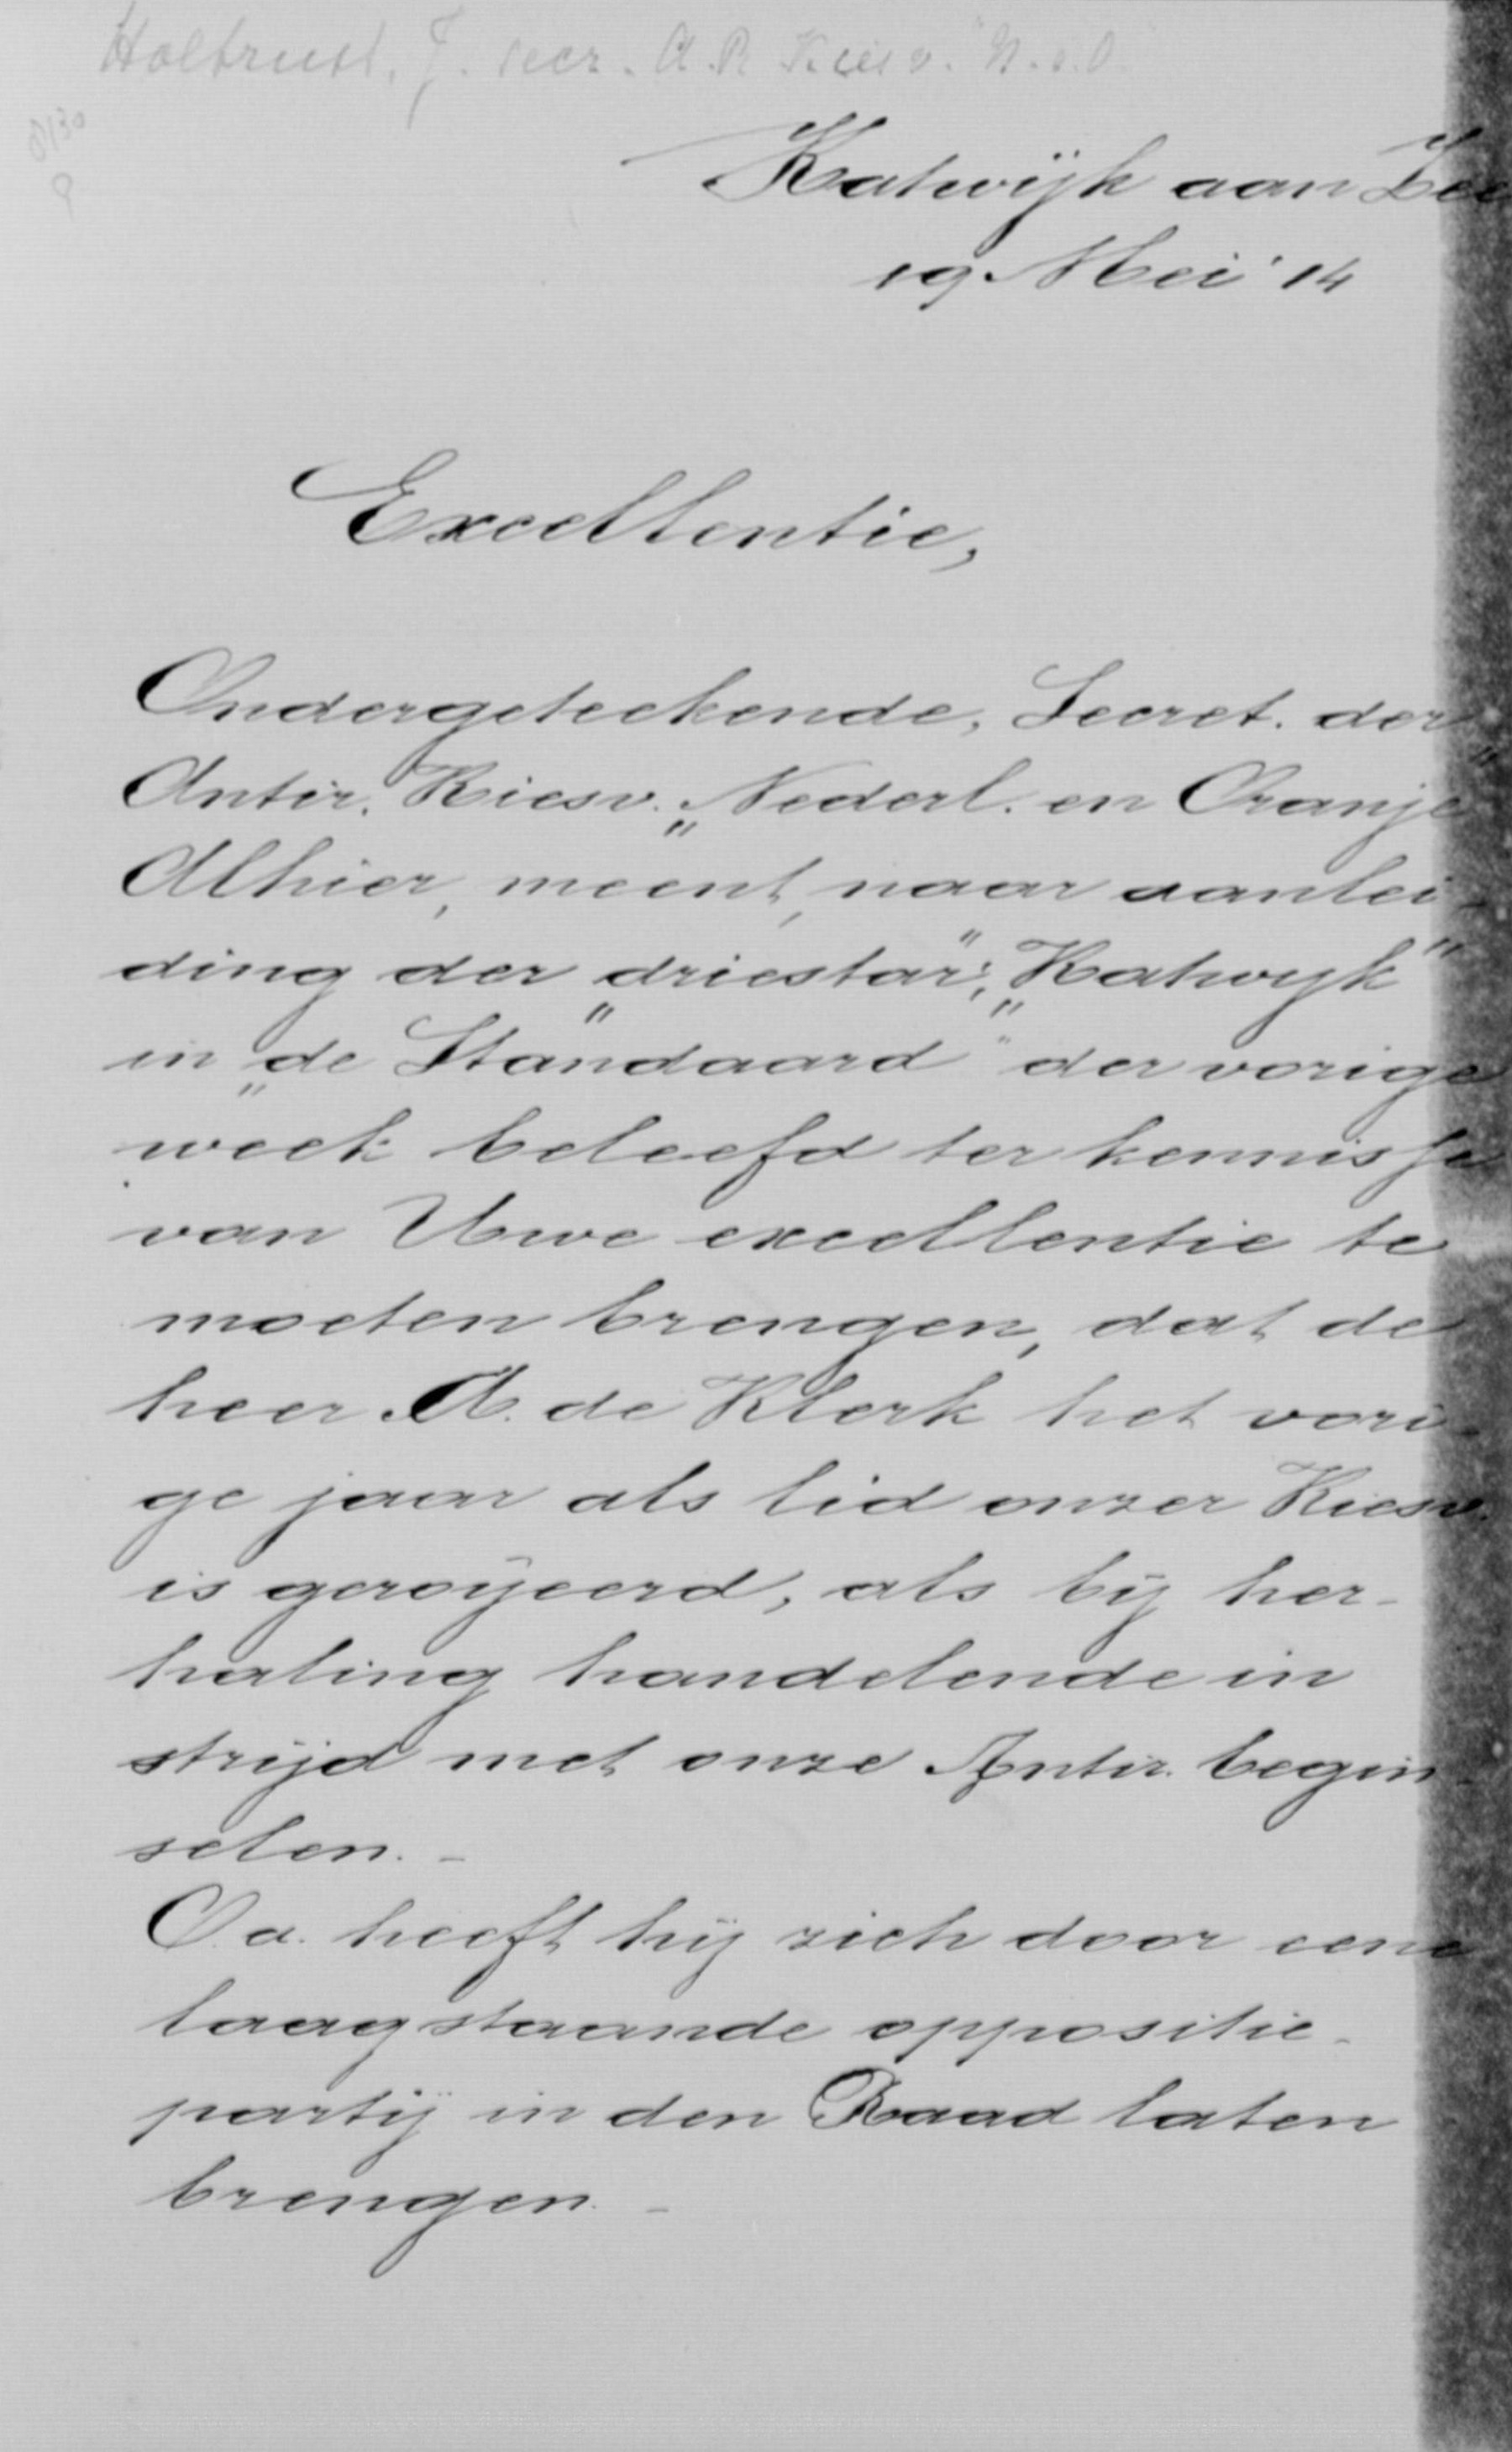 J. secr. A.R. Kiesv. N.e.O.
8130
Katwijk aan Zee
19 Mei '14
Excellentie,
Ondergeteekende, Secret. der
Antir. Kiesv. „Nederl. en Oranje"
Alhier, meent, naar aanlei-
ding der „driestar": „Katwijk"
in „de Standaard" der vorige
week beleefd ter kennisse
van Uwe excellentie te
moeten brengen, dat de
heer A. de Klerk het vori-
ge jaar als lid onzer Kiesv.
is geroyeerd, als bij her-
haling handelende in
strijd met onze Antir. begin-
selen. -
O.a. heeft hij zich door eene
laagstaande oppositie-
partij in den Raad laten
brengen. -